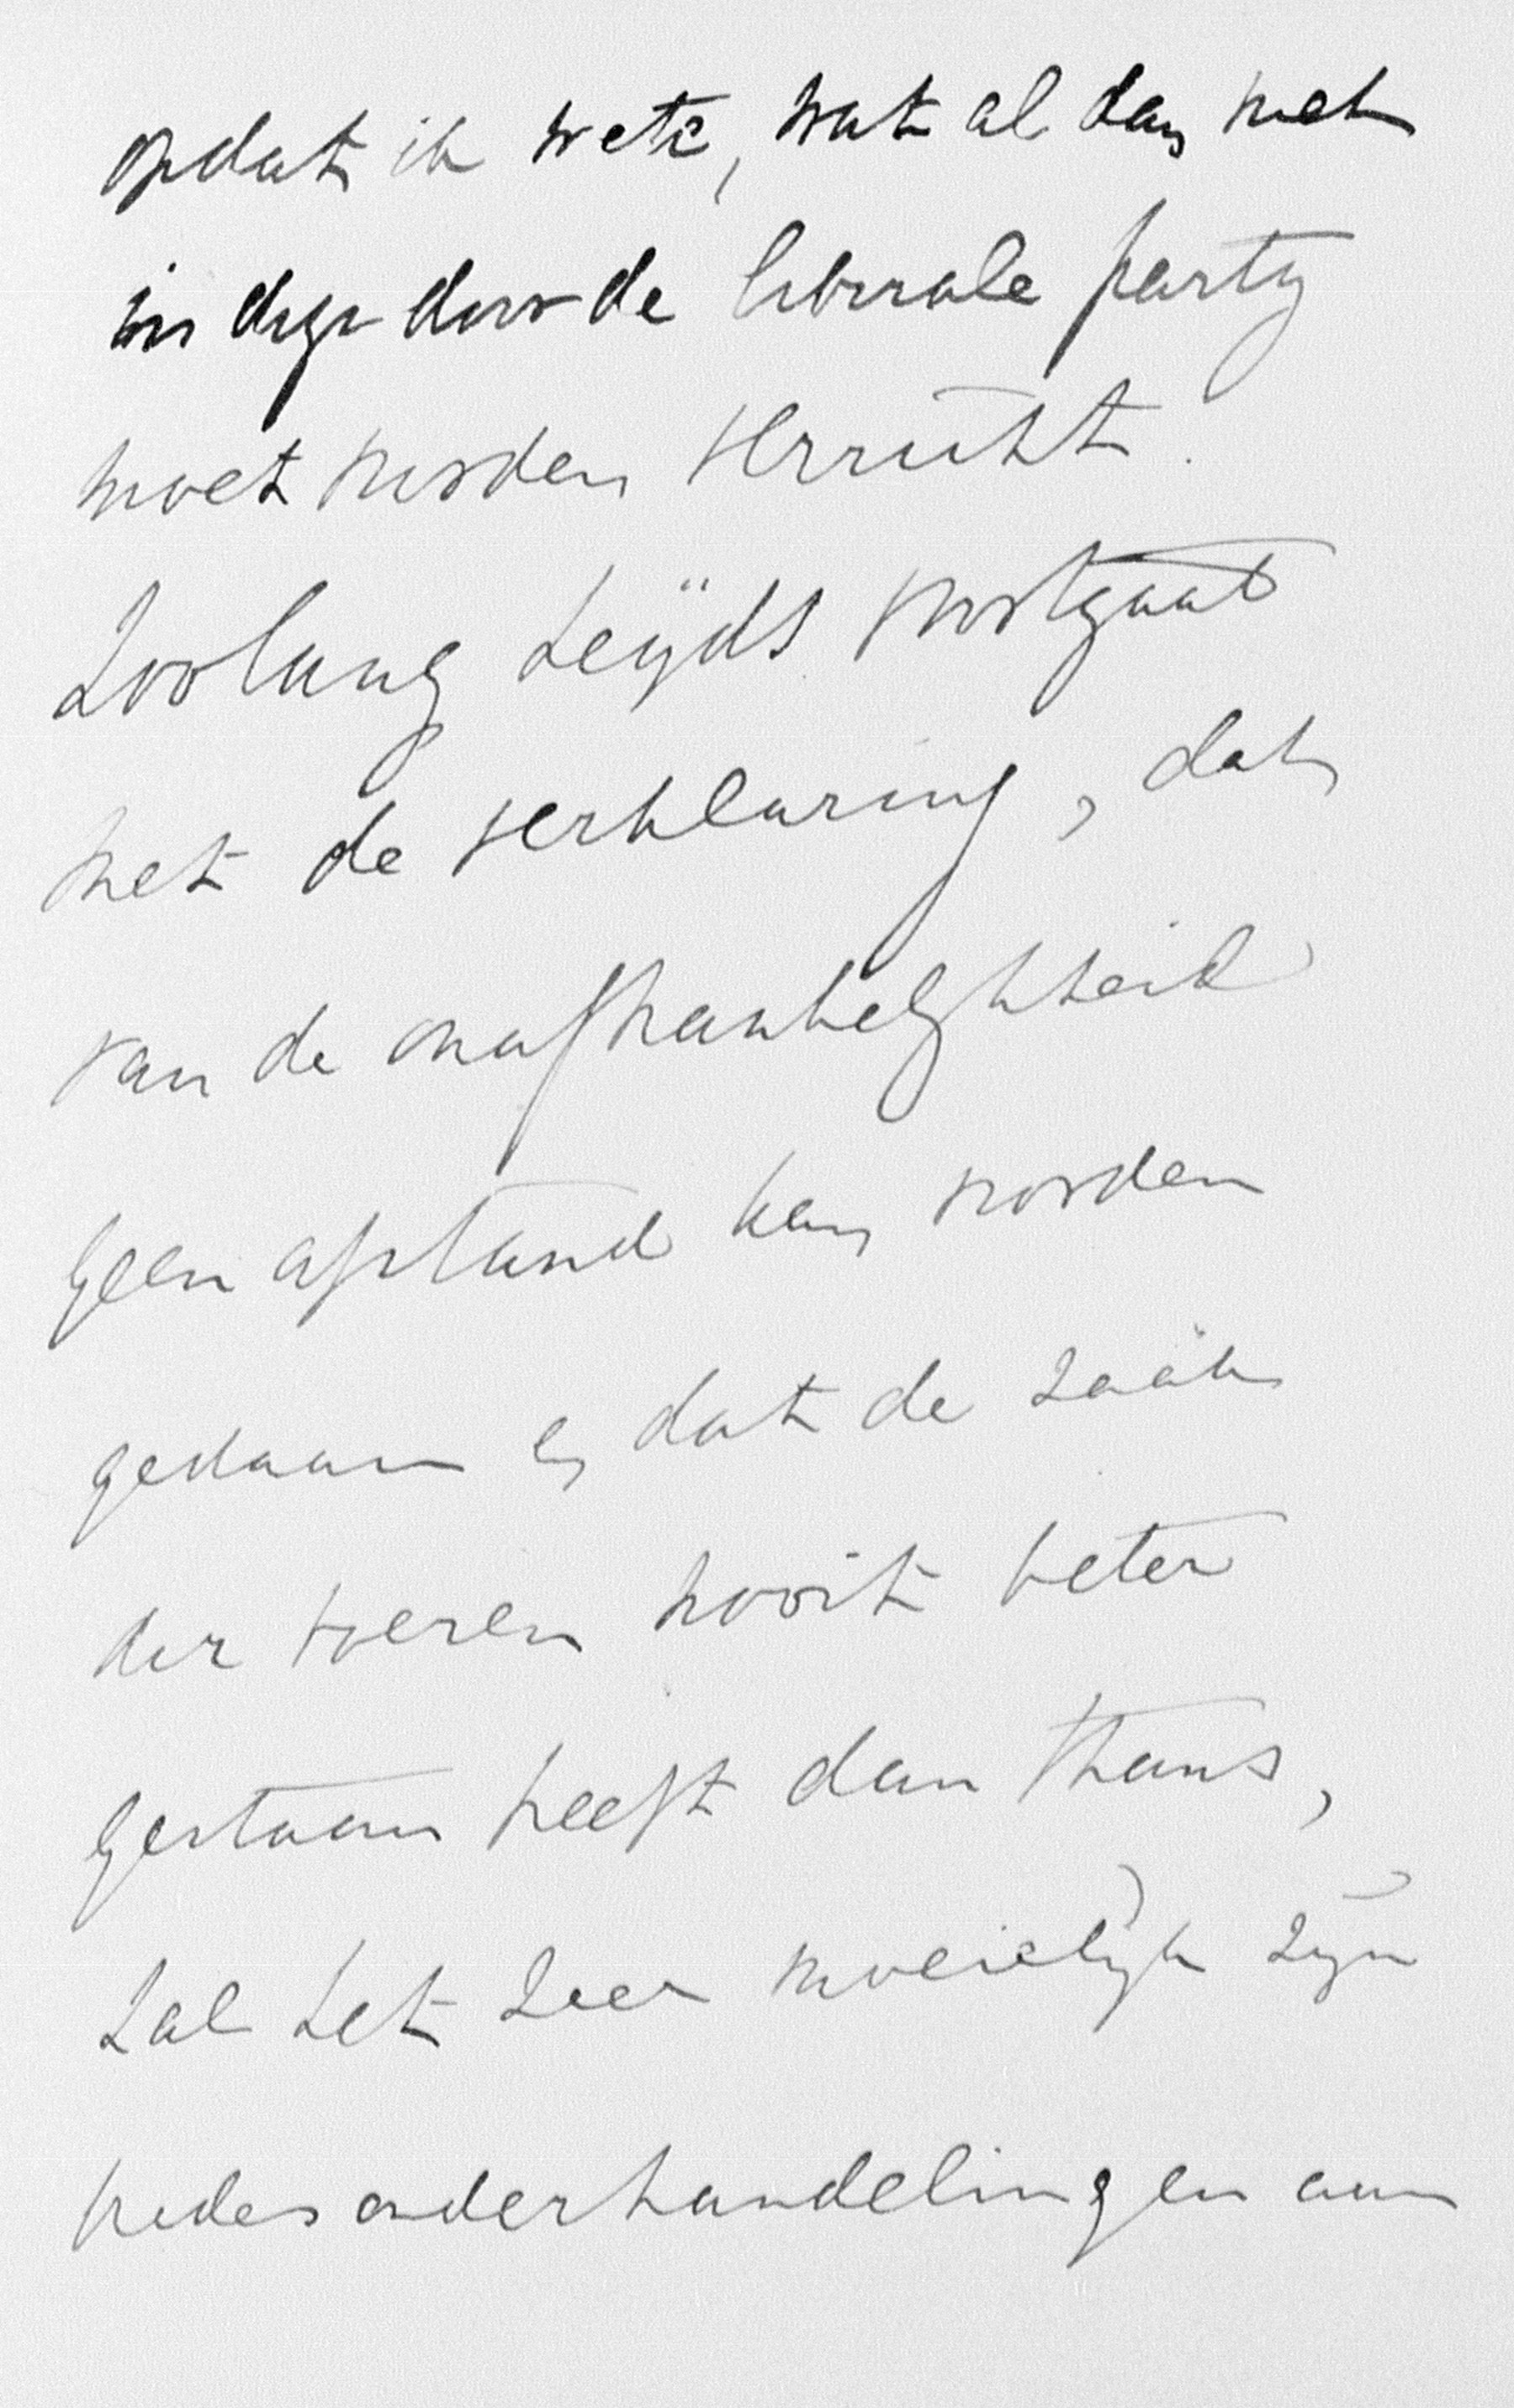 opdat ik wete, wat al dan niet
in deze door de liberale party
moet worden verricht.
Zoolang Leyds voortgaat
met de verklaring, dat
van de onafhankelykheid
geen afstand kan worden
gedaan en dat de zaak
der Boeren nooit beter
gestaan heeft dan thans,
zal het zeer moeielyk zyn
vredesonderhandelingen aan